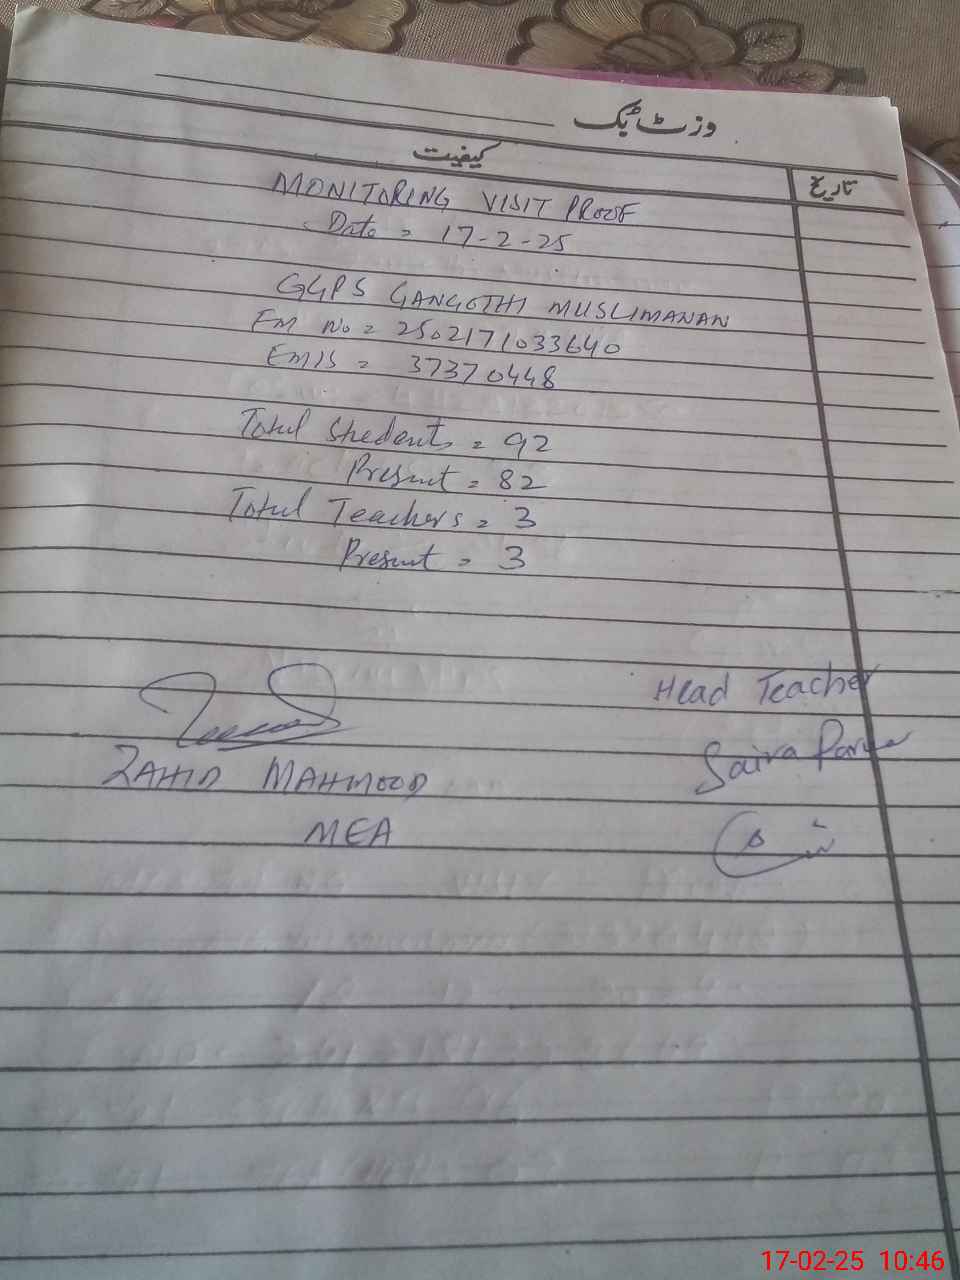 وزٹ بک
کیفیت
تاریخ
MONITORING VISIT PROOF
Date = 17-2-25
GGPS GANGOTHI MUSLIMANAN
FM No = 2502171033640
EMIS = 37370448
Total Students = 92
Present = 82
Total Teachers = 3
Present = 3
Head Teacher
ZAHID MAHMOOD
Saira
MEA
17-02-25 10:46